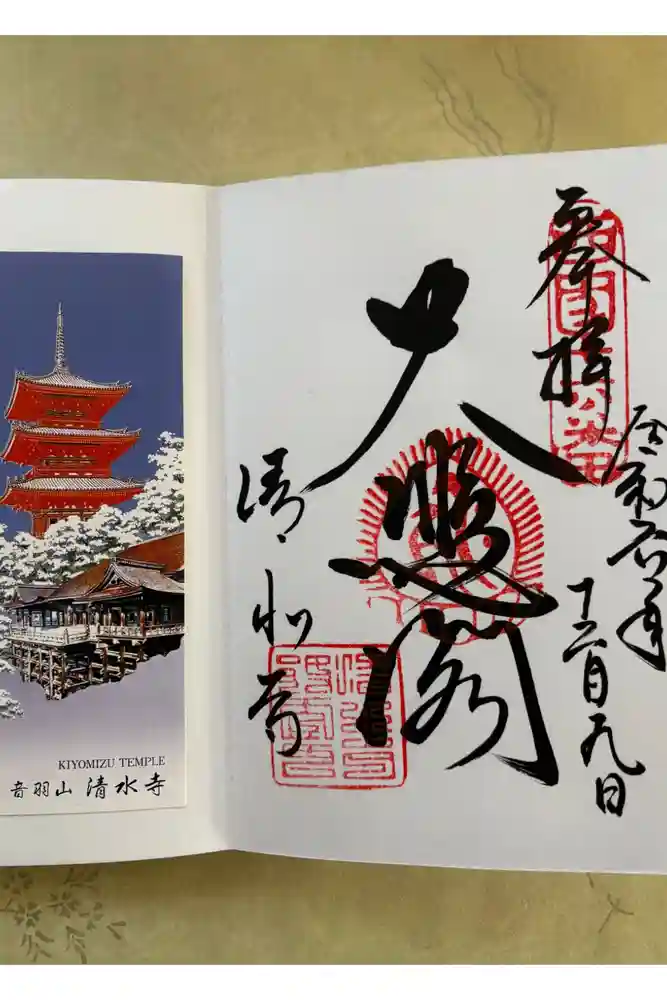 奉拝
令和六年
十二月九日
大悲閣
清水寺
KIYOMIZU TEMPLE
音羽山 清水寺